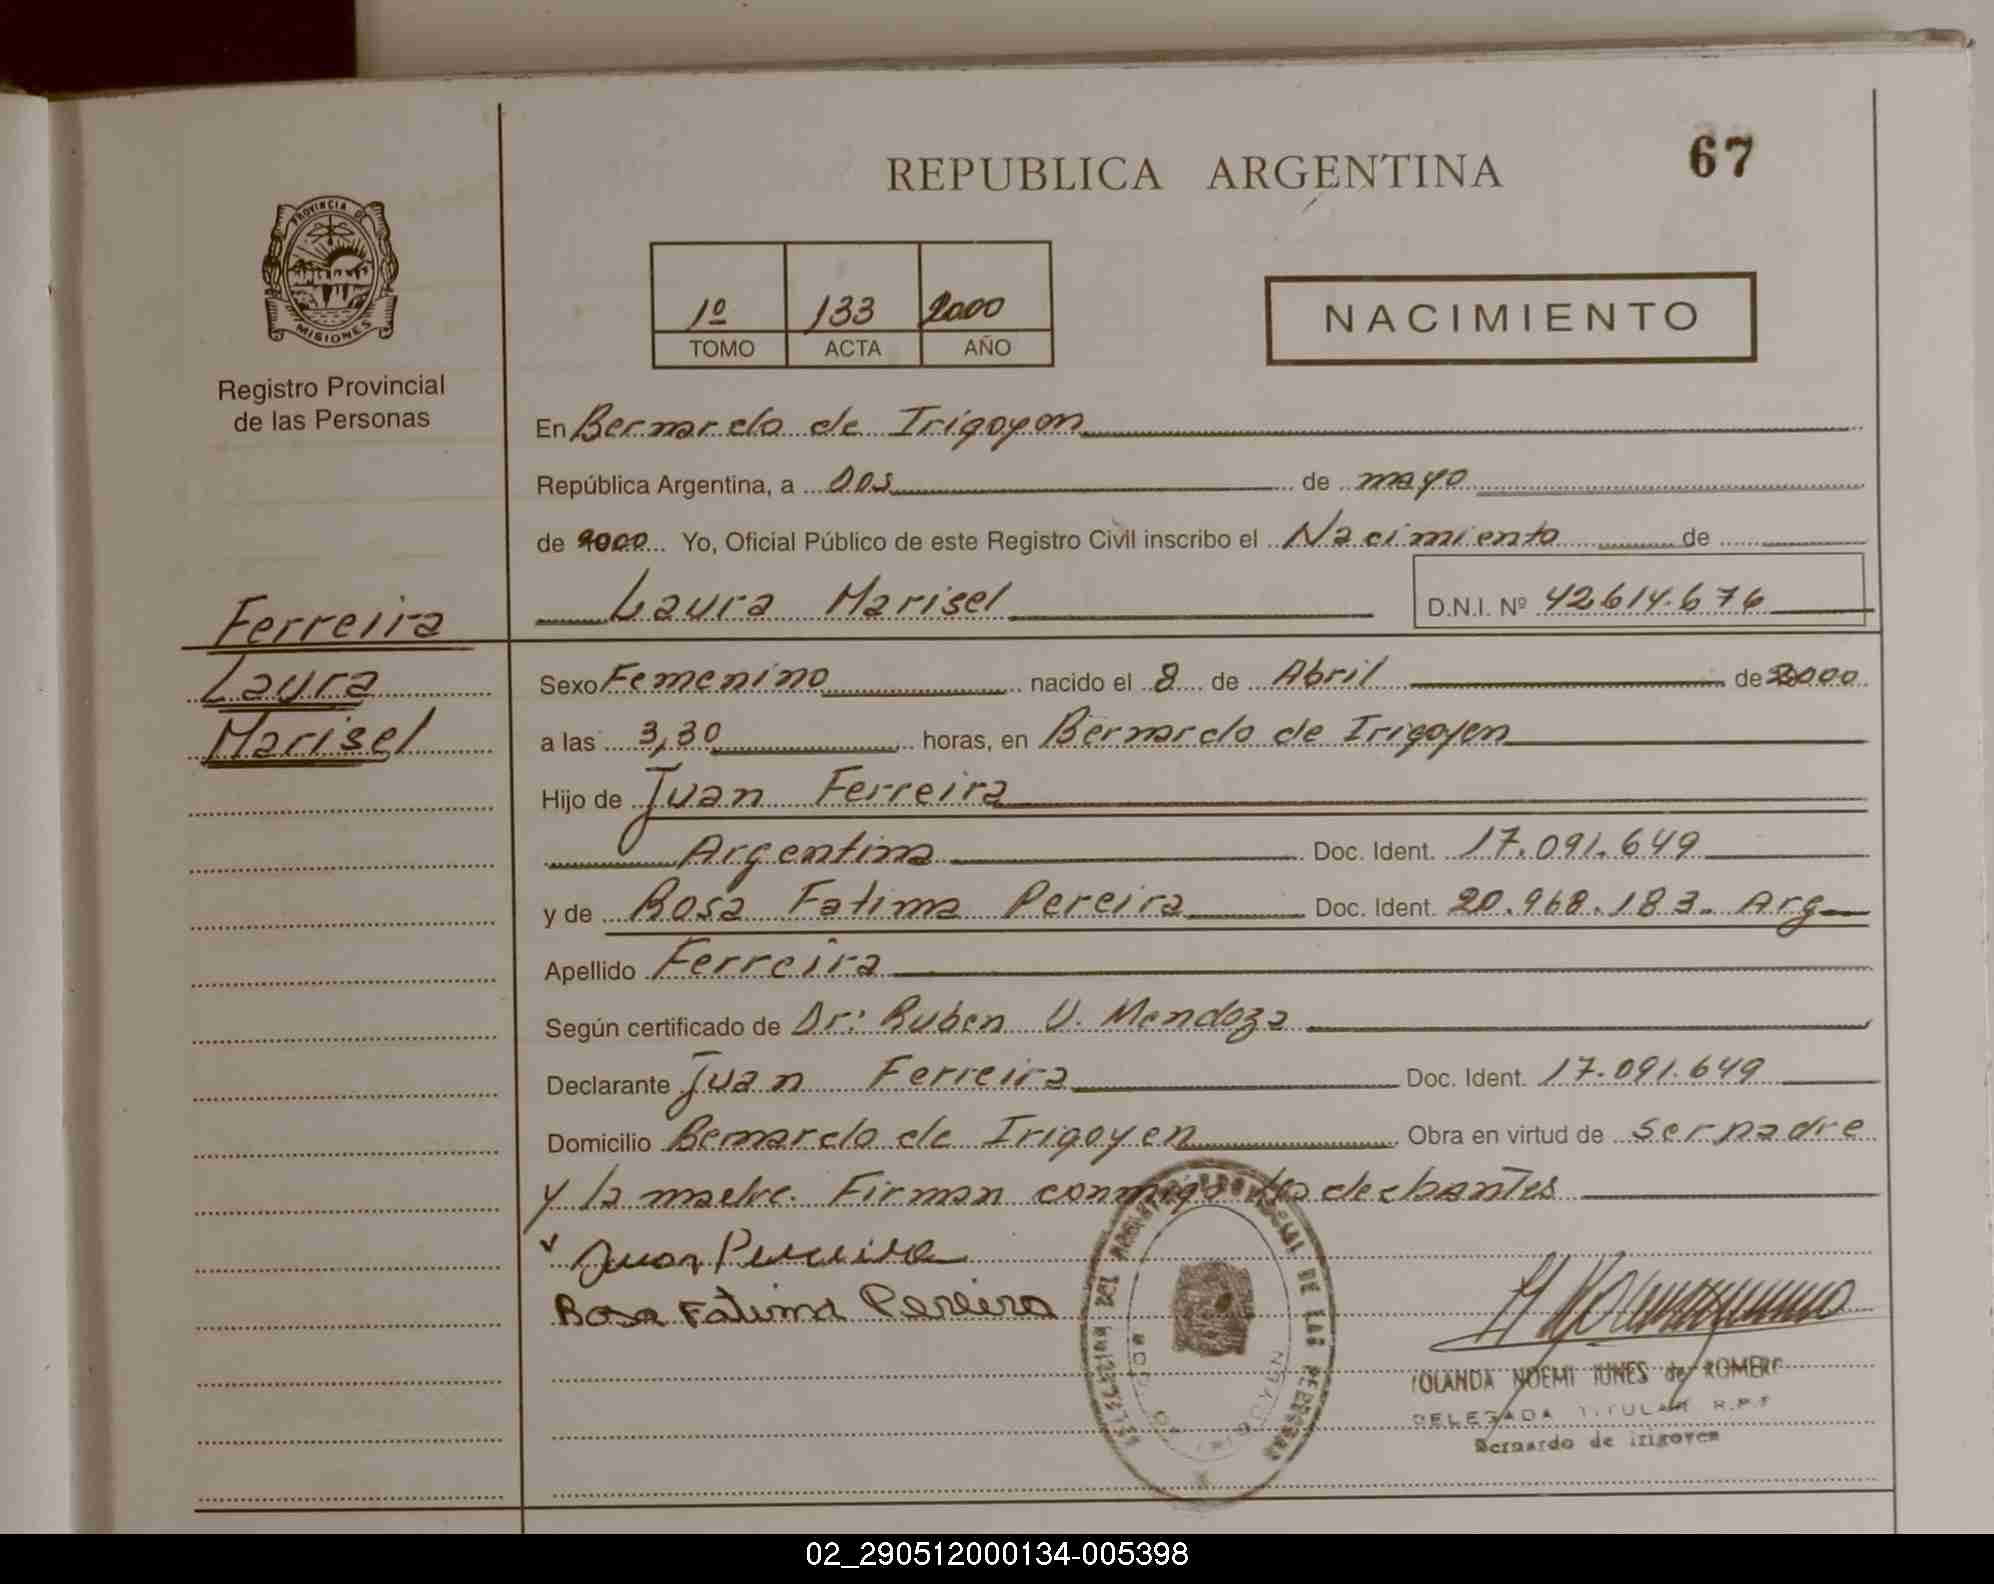 REPUBLICA ARGENTINA
67
PROVINCIA DE
MISIONES
Registro Provincial
de las Personas
1º 133 2000
TOMO ACTA AÑO
NACIMIENTO
En Bernardo de Irigoyen
República Argentina, a Dos de mayo
de 2000 Yo, Oficial Público de este Registro Civil inscribo el Nacimiento de
Laura Marisel D.N.I. Nº 42.614.676
Ferreira
Laura
Marisel
Sexo Femenino nacido el 8 de Abril de 2000
a las 3,30 horas, en Bernardo de Irigoyen
Hijo de Juan Ferreira
Argentina Doc. Ident. 17.091.649
y de Rosa Fatima Pereira Doc. Ident. 20.968.183. Arg
Apellido Ferreira
Según certificado de Dr: Ruben V. Mendoza
Declarante Juan Ferreira Doc. Ident. 17.091.649
Domicilio Bernardo de Irigoyen Obra en virtud de ser padre
y la madre. Firman conmigo
Juan
Rosa Fatima Pereira
REGISTRO PROVINCIAL DE LAS PERSONAS
BDO. DE IRIGOYEN
YOLANDA NOEMI IUNES de ROMERO
DELEGADA TITULAR R.P.P
Bernardo de Irigoyen
02_290512000134-005398